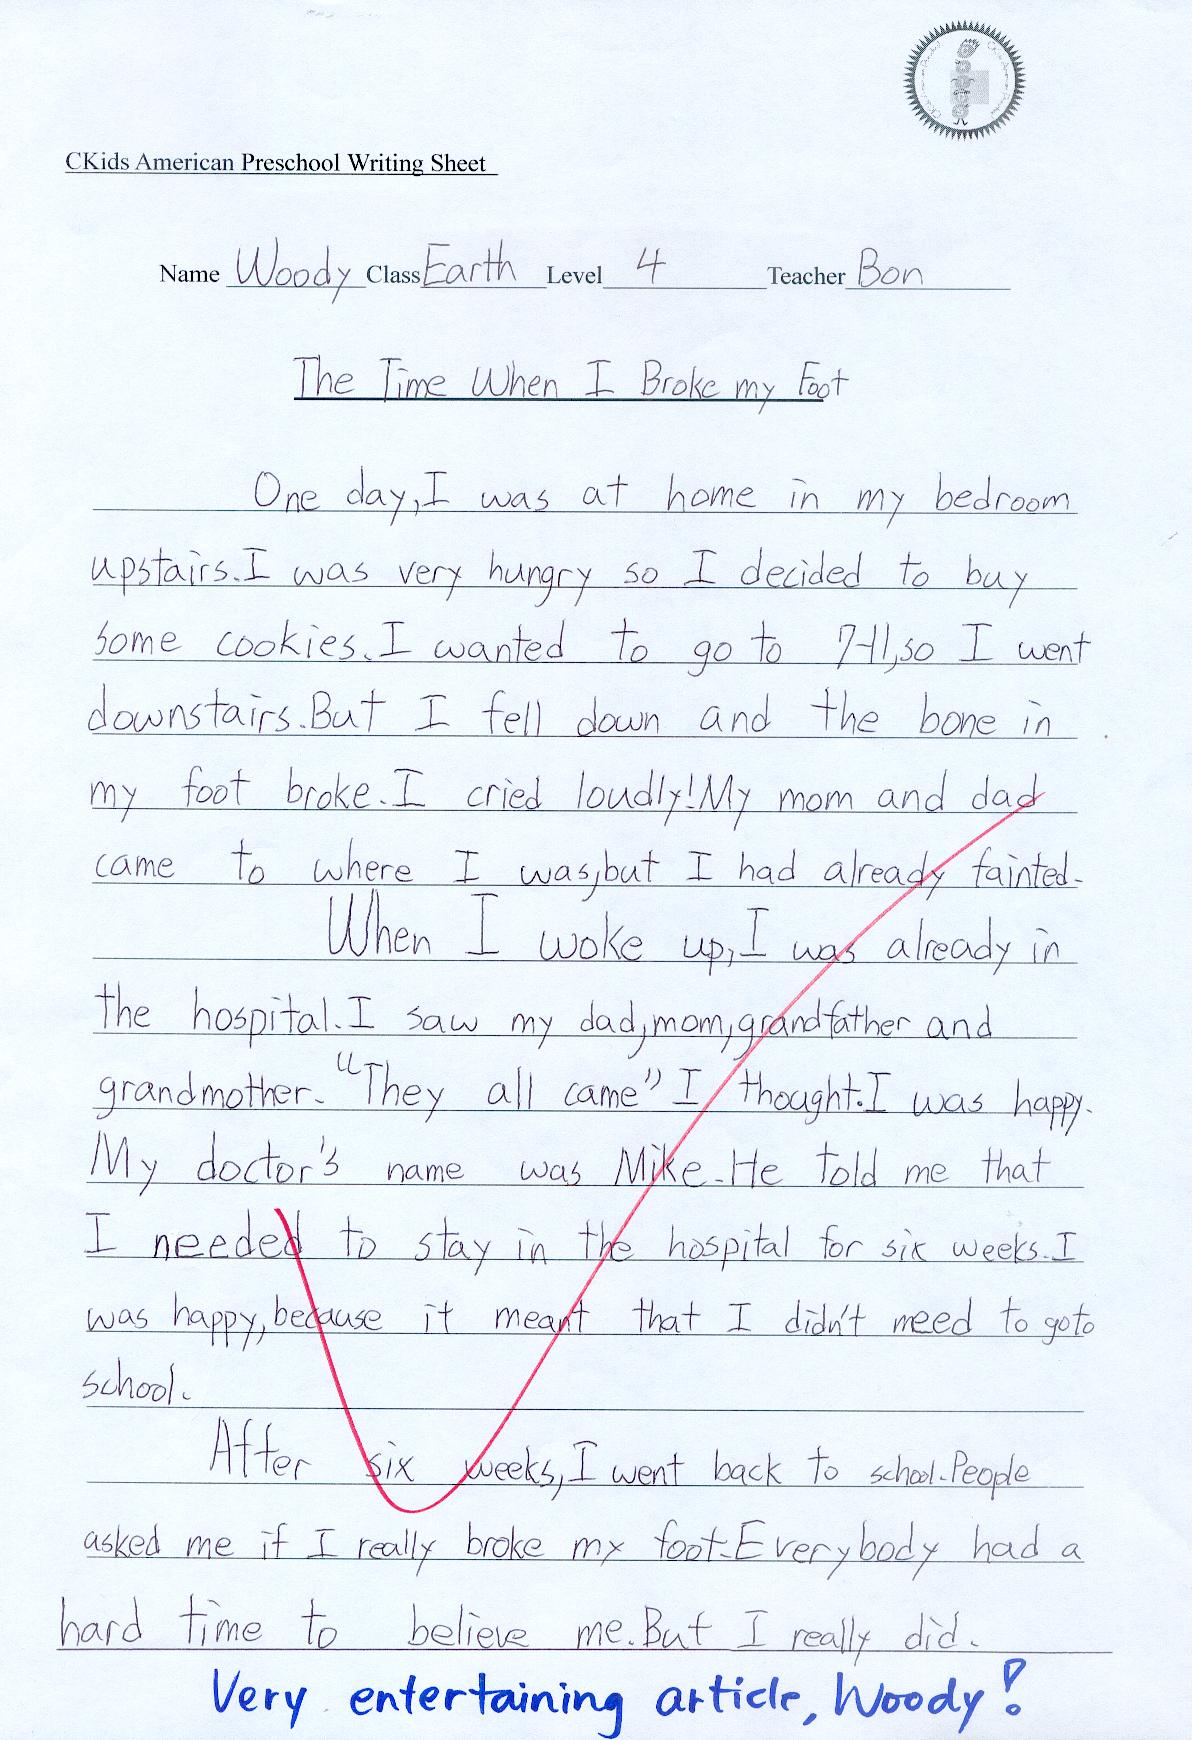 CKids American Preschool Writing Sheet
Name Woody Class Earth Level 4 Teacher Bon
The Time When I Broke my Foot
One day, I was at home in my bedroom
upstairs. I was very hungry so I decided to buy
some cookies. I wanted to go to 7-11, so I went
downstairs. But I fell down and the bone in
my foot broke. I cried loudly! My mom and dad
came to where I was, but I had already fainted.
When I woke up, I was already in
the hospital. I saw my dad, mom, grandfather and
grandmother. "They all came" I thought. I was happy.
My doctor's name was Mike. He told me that
I needed to stay in the hospital for six weeks. I
was happy, because it meant that I didn't need to go to
school.
After six weeks, I went back to school. People
asked me if I really broke my foot. Everybody had a
hard time to believe me. But I really did.
Very entertaining article, Woody!